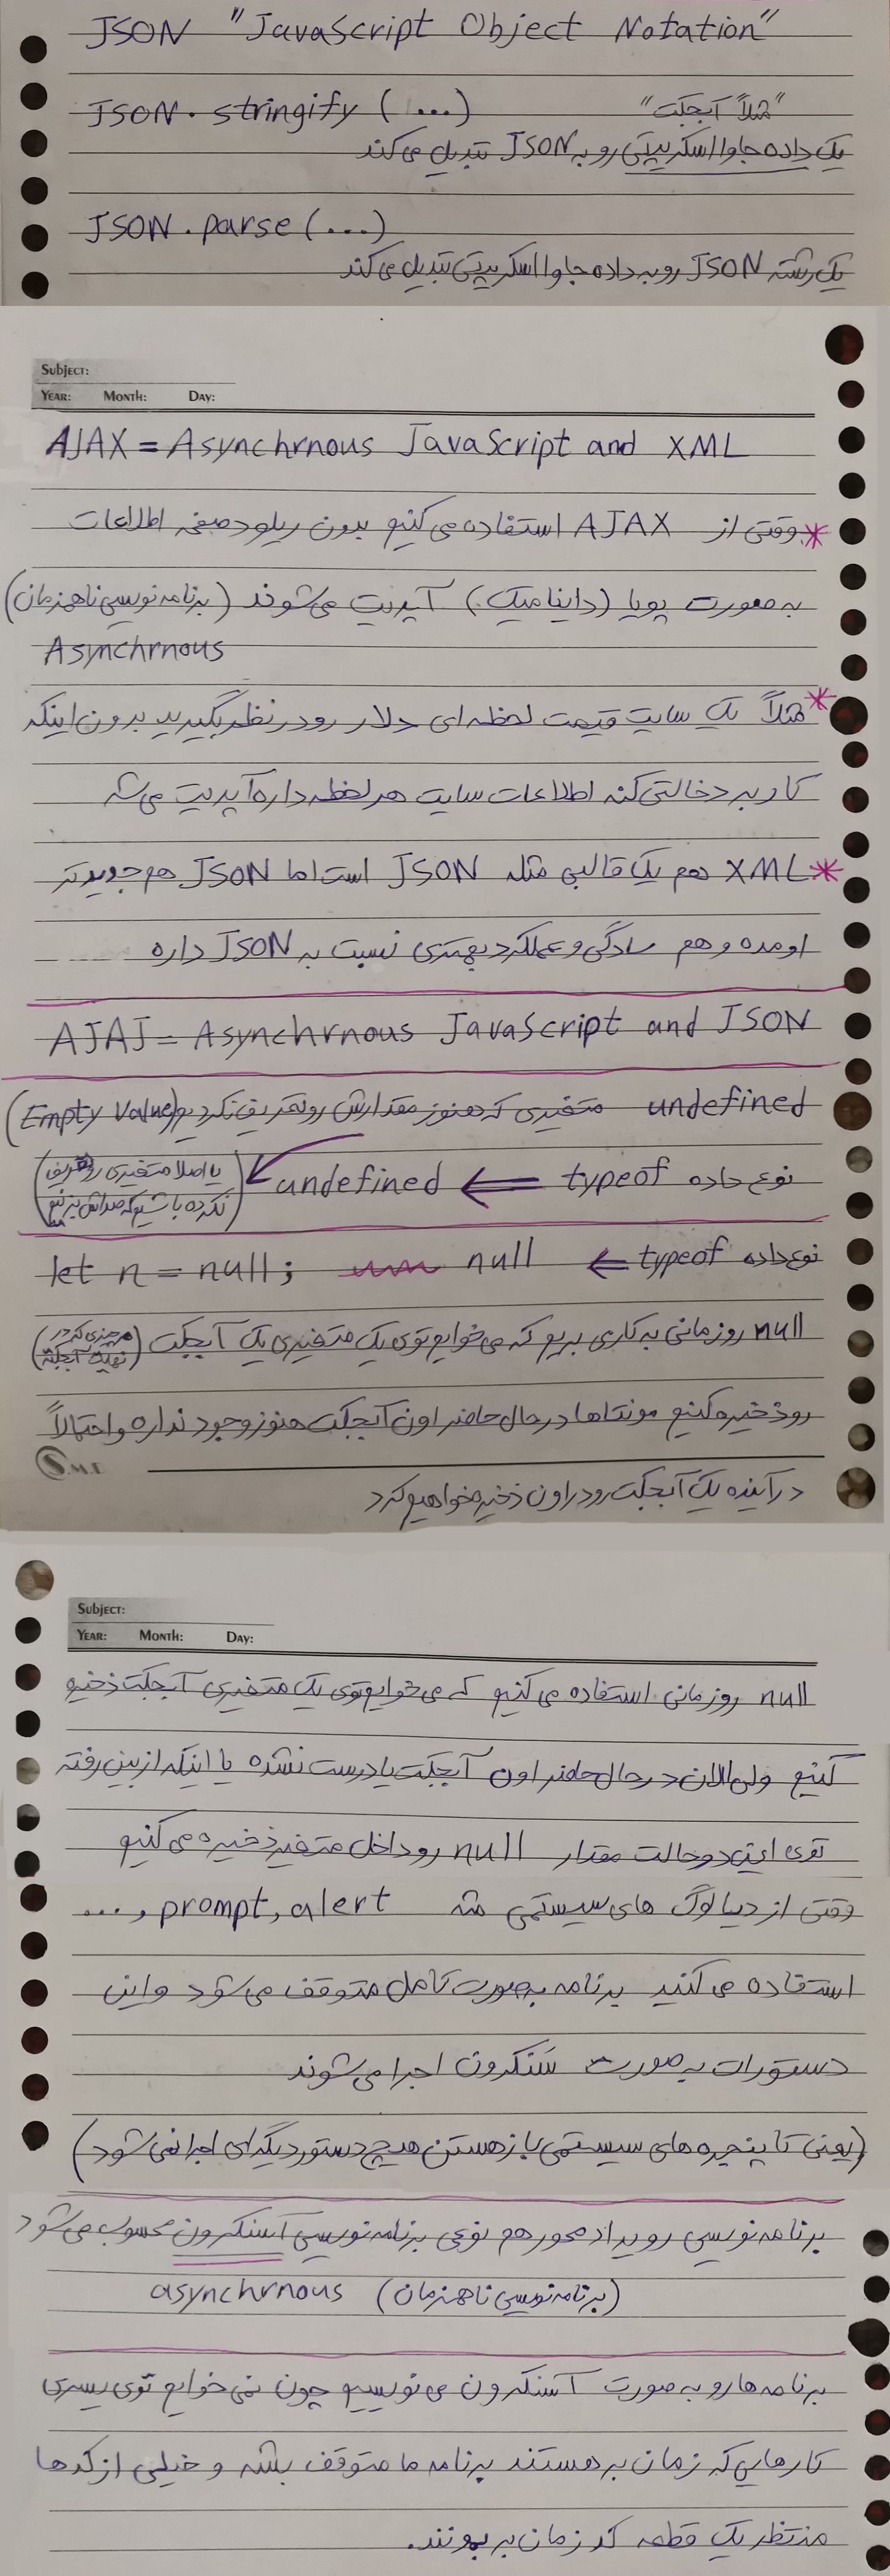 JSON "JavaScript Object Notation"
JSON.stringify (...) "مثلاً آبجکت"
یک داده جاوااسکریپتی رو به JSON تبدیل می‌کند
JSON.parse (...)
یک رشته JSON رو به داده جاوااسکریپتی تبدیل می‌کند
Subject:
Year: Month: Day:
AJAX = Asynchrnous JavaScript and XML
* وقتی از AJAX استفاده می‌کنیم بدون ریلود صفحه اطلاعات
به صورت پویا (داینامیک) آپدیت می‌شوند (برنامه نویسی ناهمزمان)
Asynchrnous
* مثلاً یک سایت قیمت لحظه‌ای دلار رو در نظر بگیرید بدون اینکه
کاربر دخالتی کنه اطلاعات سایت هر لحظه داره آپدیت می‌شه
* XML هم یک قالبی مثله JSON است اما JSON هم جدیدتر
اومده و هم سادگی و عملکرد بهتری نسبت به JSON داره
AJAJ = Asynchrnous JavaScript and JSON
undefined متغیری که هنوز مقدارش رو تعریف نکردیم (Empty Value)
نوع داده typeof ⟸ undefined (یا اصلا متغیری رو تعریف
نکرده باشیم که صداش بزنیم)
let n = null; null ← typeof نوع داده
null رو زمانی به کاری بریم که می‌خوایم توی یک متغیری یک آبجکت (هرچیزی که در
نهایت آبجکته)
رو ذخیره کنیم مونتاها در حال حاضر اون آبجکت هنوز وجود نداره و احتمالاً
در آینده یک آبجکت رو در اون ذخیره خواهیم کرد
Subject:
Year: Month: Day:
null رو زمانی استفاده می‌کنیم که می‌خوایم توی یک متغیری آبجکت ذخیره
کنیم ولی الان در حال حاضر اون آبجکت یا درست نشده یا اینکه از بین رفته
توی این دو حالت مقدار null رو داخل متغیر ذخیره می‌کنیم
وقتی از دیالوگ های سیستمی مثه prompt, alert, ...
استفاده می‌کنید برنامه به صورت کامل متوقف می‌شود و این
دستورات به صورت سَنکرون اجرا می‌شوند
(یعنی تا پنجره های سیستمی باز هستن هیچ دستور دیگه‌ای اجرا نمی‌شود)
برنامه نویسی رویداد محور هم نوعی برنامه نویسی آسنکرون محسوب می‌شود
(برنامه نویسی ناهمزمان) asynchrnous
برنامه ها رو به صورت آسنکرون می‌نویسیم چون نمی‌خوایم توی یسری
کارهایی که زمان بر هستند برنامه ما متوقف بشه و خیلی از کدها
منتظر یک قطعه کد زمان بر بمونند.